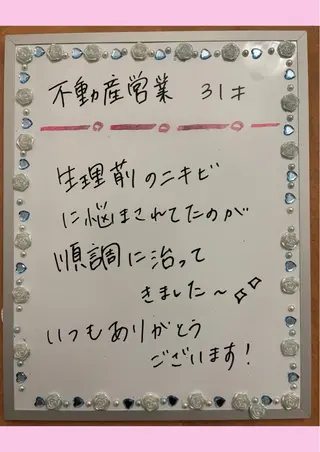 不動産営業 31才
生理前のニキビ
に悩まされてたのが
順調に治って
きました〜
いつもありがとう
ございます!